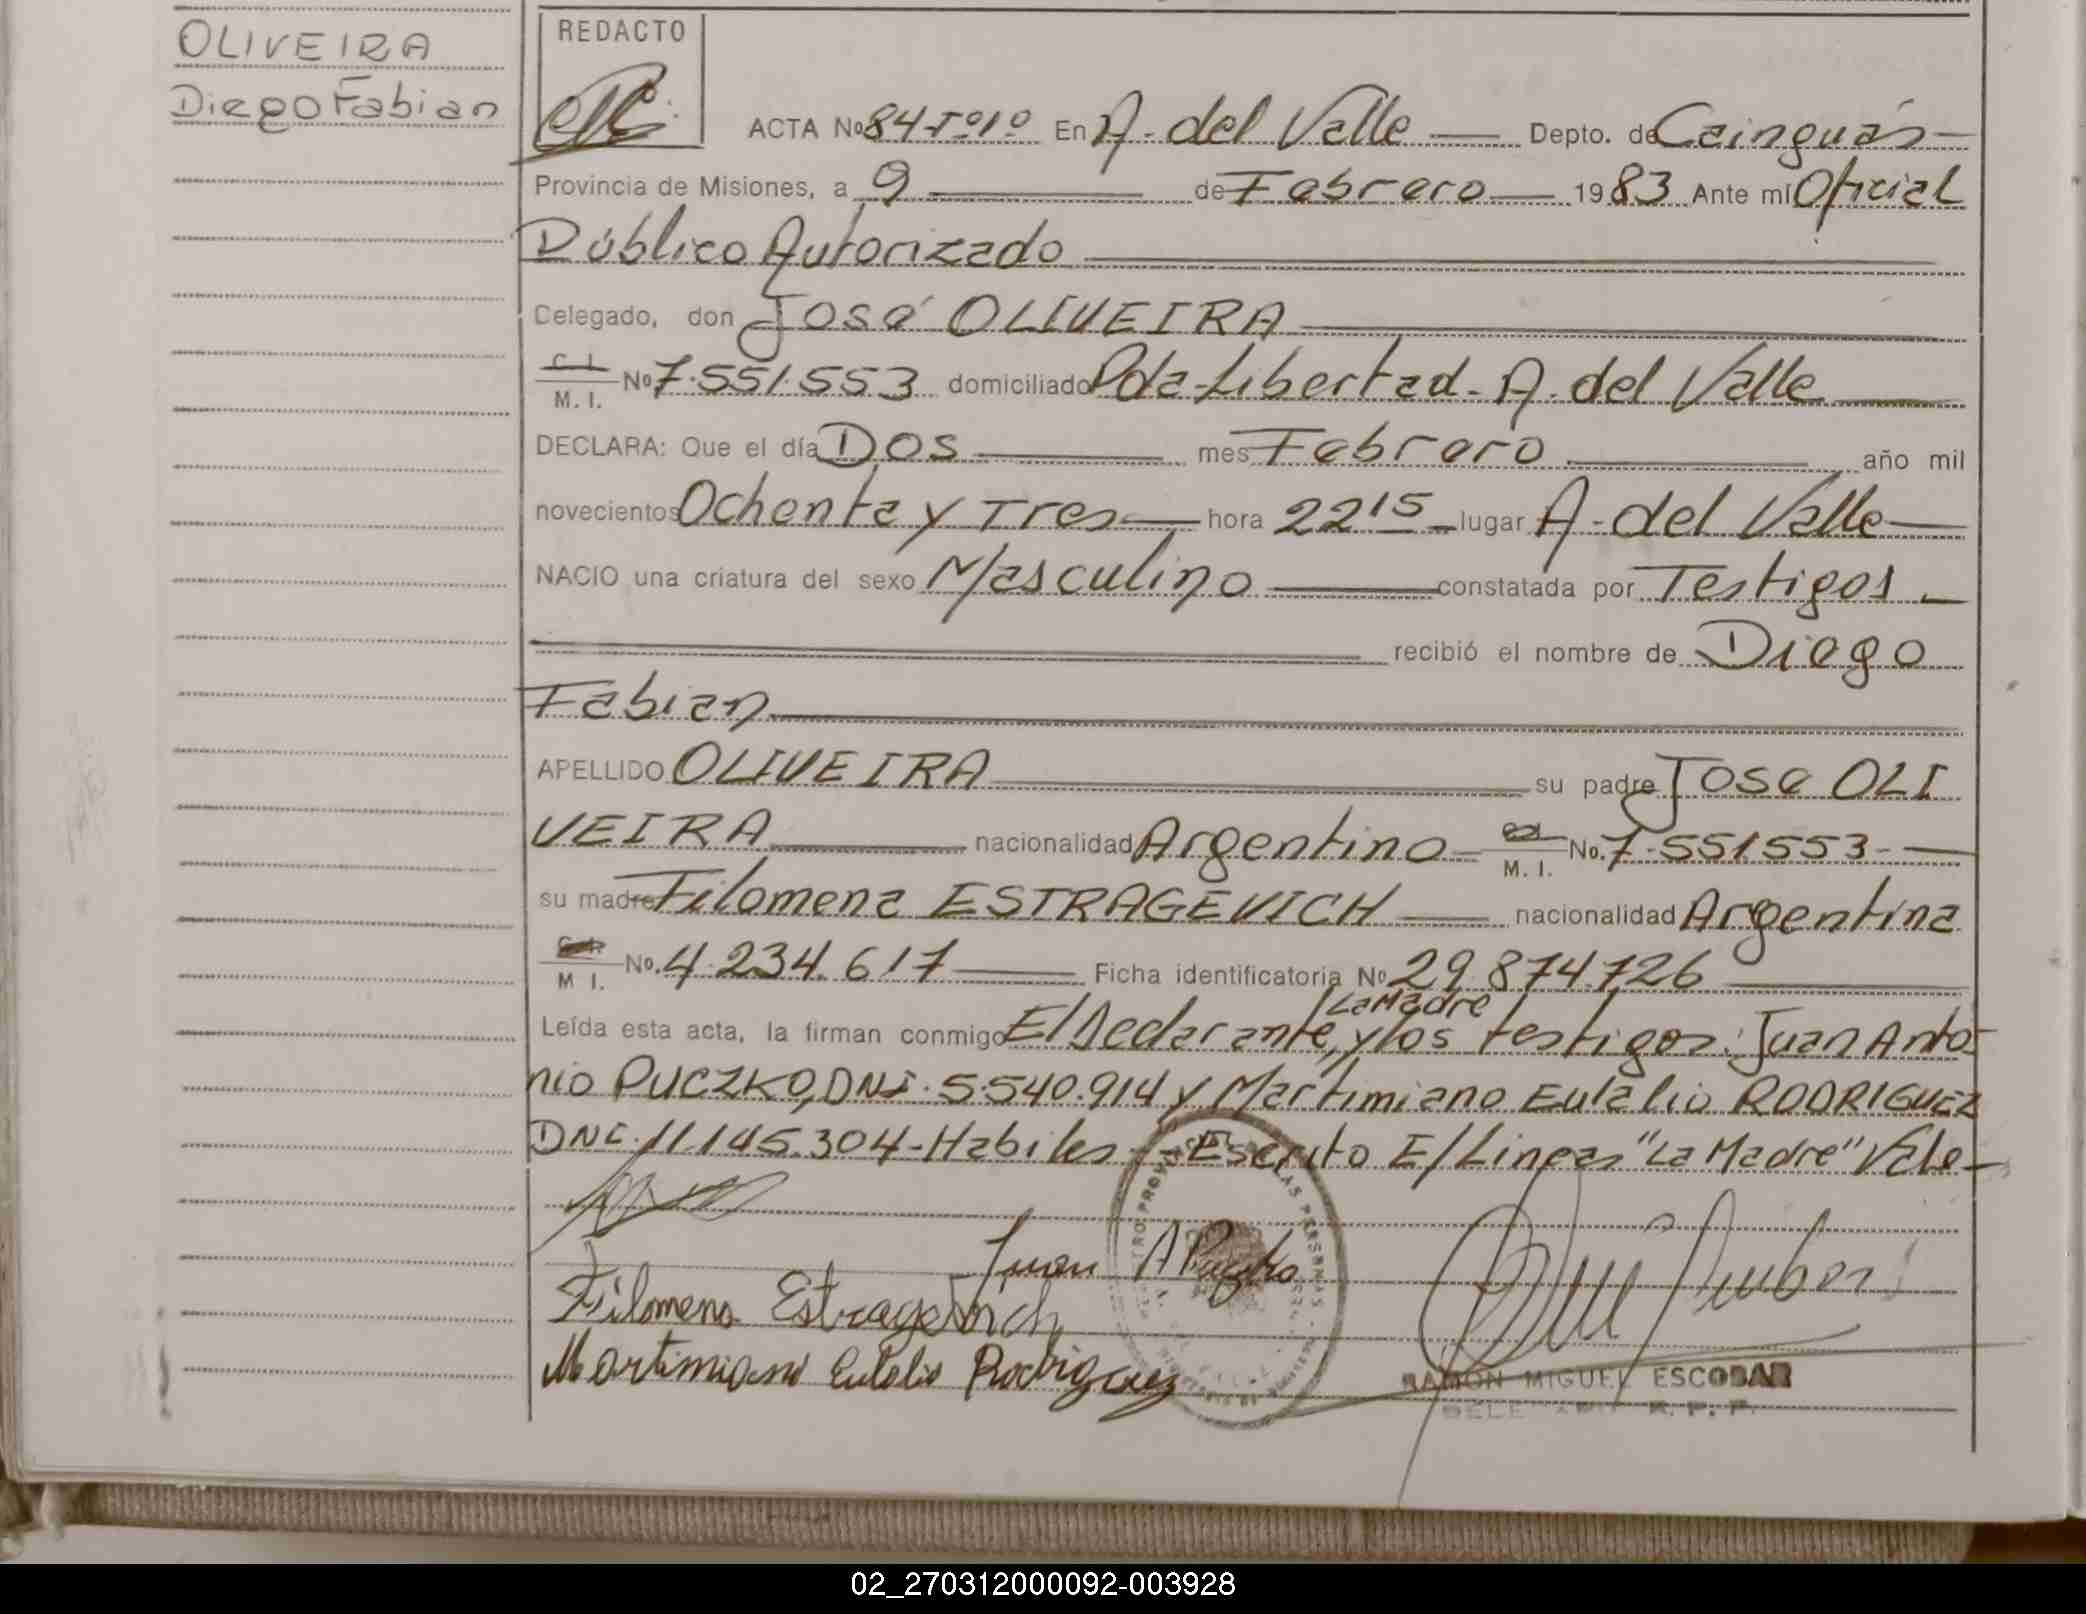 OLIVEIRA
Diego Fabian
REDACTO
ACTA No 84-Tº1º En A. del Valle Depto. de Cainguás
Provincia de Misiones, a 9 de Febrero 1983 Ante mí Oficial
Público Autorizado
Celegado, don José OLIVEIRA
C I
M. I. No 7.551.553 domiciliado Pda-Libertad-A. del Valle
DECLARA: Que el día Dos mes Febrero año mil
novecientos Ochenta y Tres hora 2215 lugar A-del Valle
NACIO una criatura del sexo Masculino constatada por Testigos
recibió el nombre de Diego
Fabian
APELLIDO OLIVEIRA su padre Jose OLI
VEIRA nacionalidad Argentino M. I. No. 7.551553
su madre Filomena ESTRAGEVICH nacionalidad Argentina
M I. No. 4.234.617 Ficha identificatoria No 29.874.726
La Madre
Leída esta acta, la firman conmigo El Declarante, y los testigos: Juan Anto-
nio PUCZKO, DNI. 5.540.914 y Martimiano Eulalio RODRIGUEZ
DNI. 11.145.304-Habiles - Escrito E/Lineas "La Madre" Vale-
Juan A Puczko
Filomena Estragevich
Martimiano Eulalio Rodriguez
RAMON MIGUEL ESCOBAR
02_270312000092-003928